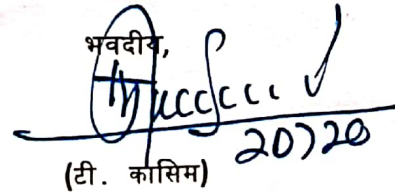 भवदीय,
20720
(टी. कासिम)